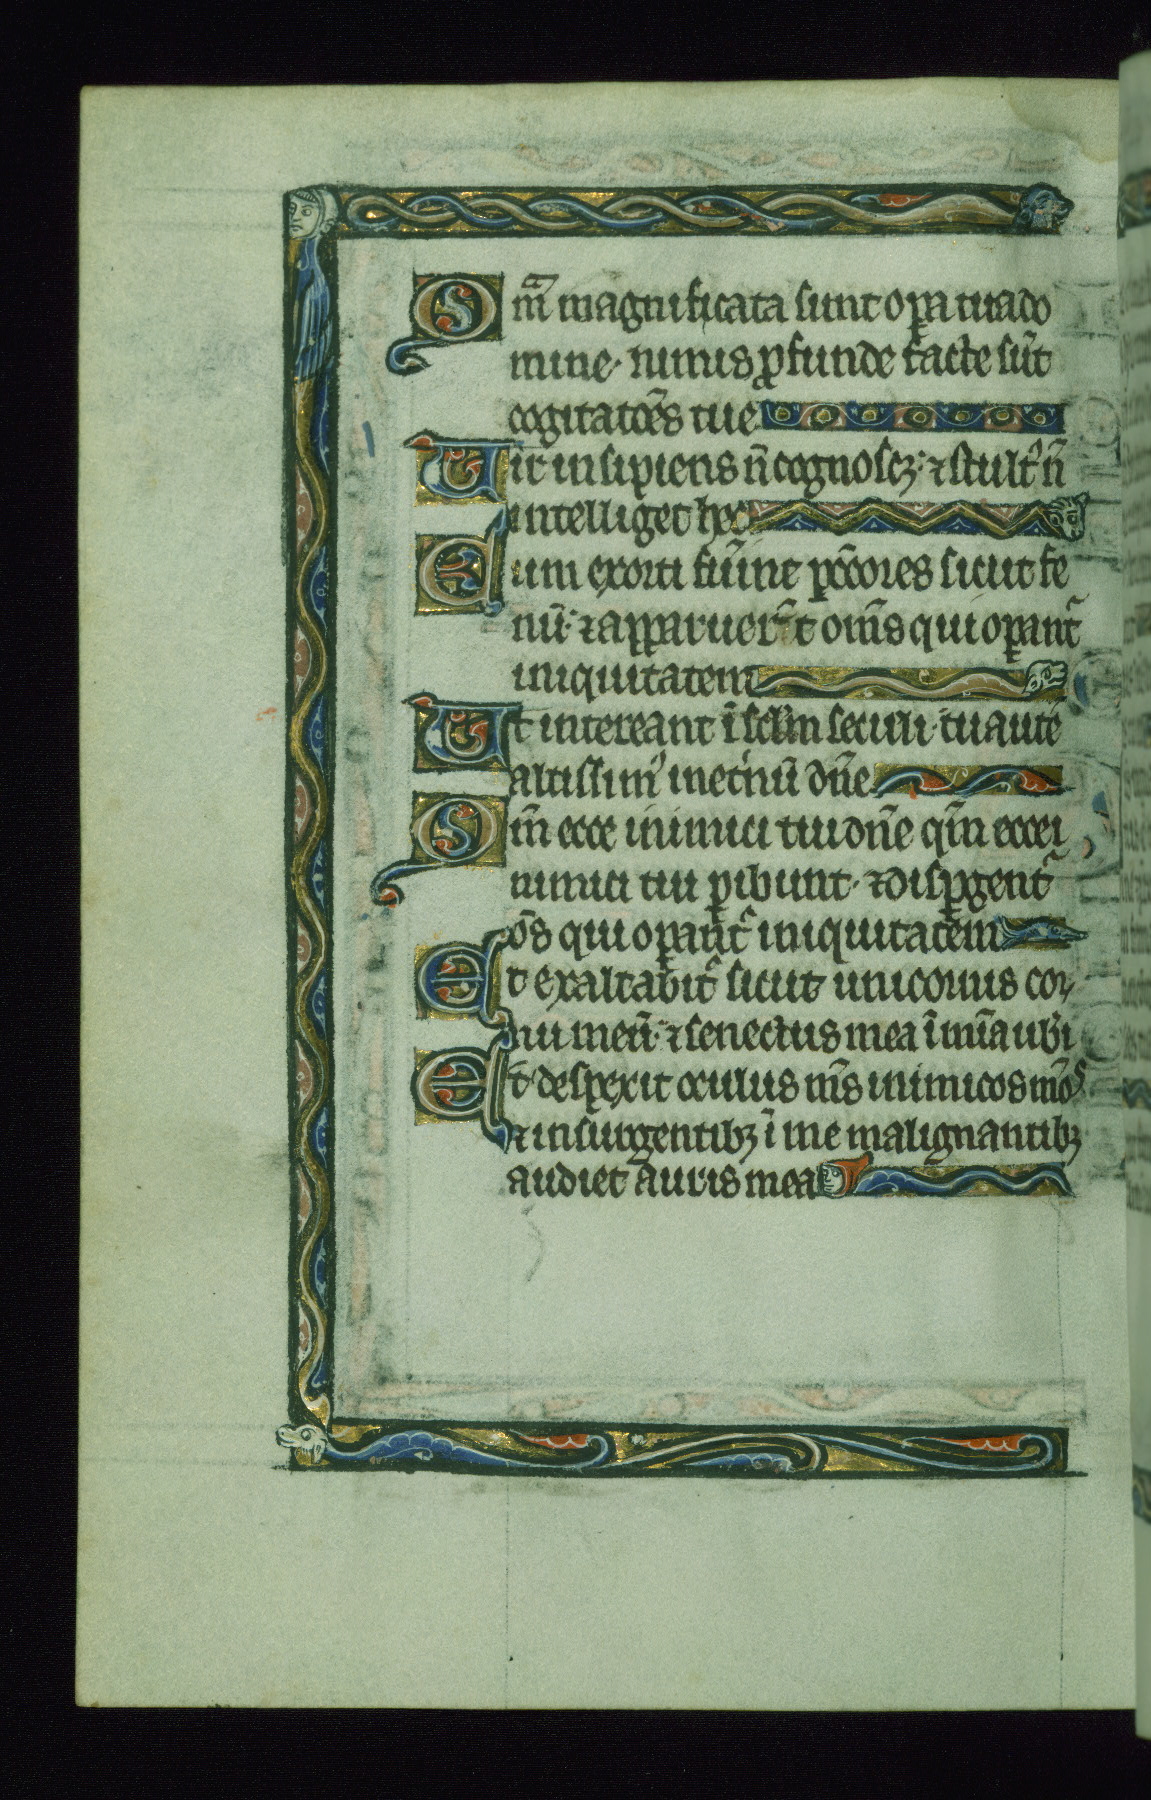 Qm̄ magnificata sunt oꝑa tua do
mine· nimis ꝓfunde facte sūt
cogitatōēs tue
Uir insipiens n̄ cognoscꝫ: ⁊ stultꝰ n̄
intelliget hec
Cum exorti fūint pc̄cores sicut fe
nū: ⁊ apparuer̄t om̄s qui oꝑantᷣ
iniquitatem
Ut intereant ī sc̄lm seculi· tu autē
altissimꝰ inet̓nū dn̄e
Qm̄ ecce inimici tui dn̄e qm̄ ecce i
nimici tui ꝑibunt· ⁊ disꝑgentᷣ
om̄s qui oꝑantᷣ iniquitatem
Et exaltabitᷣ sicut unicornis cor
nu meū: ⁊ senectus mea ī mīa ub̓i
Et despexit oculus m̄s inimicos mōs
⁊ insurgentibꝫ ī me malignantibꝫ
audiet auris mea